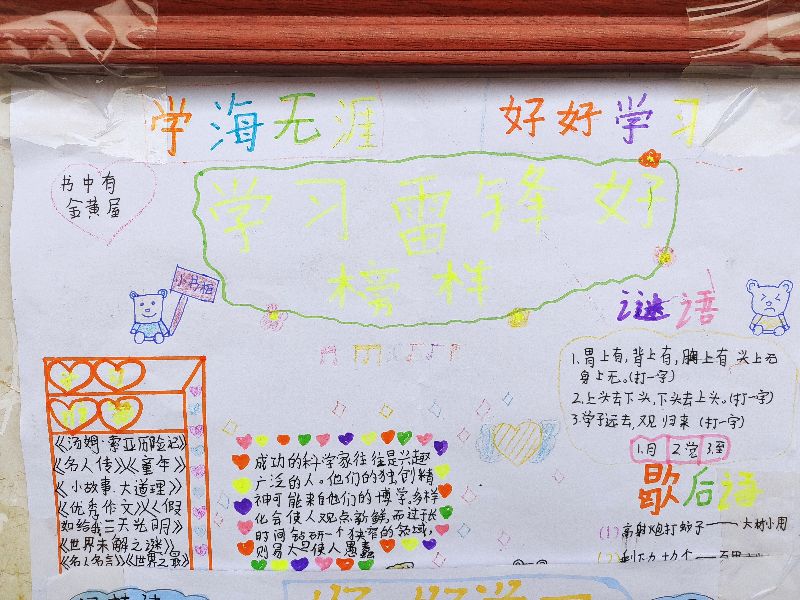 学海无涯
好好学习
书中有
金黄屋
学习雷锋好
榜样
小书柜
谜语
1.胃上有,背上有,胸上有 头上无
身上无。(打一字)
2.上头去下头,下头去上头。(打一字)
3.学子远去,又见归来 (打一字)
1.月 2.至 3.
《汤姆·索亚历险记》
《名人传》《童年》
《小故事.大道理》
《优秀作文》《假
如给我三天光明》
《世界未解之谜》
《名人名言》《世界之最》
成功的科学家往往是兴趣
广泛的人。他们的独创精
神可能来自他们的博学。多样
化会使人观点新鲜,而过于长
时间钻研一个狭窄的领域,
则易使人愚蠢
歇后语
(1) 高射炮打蚊子——大材小用
(2)
好好学习